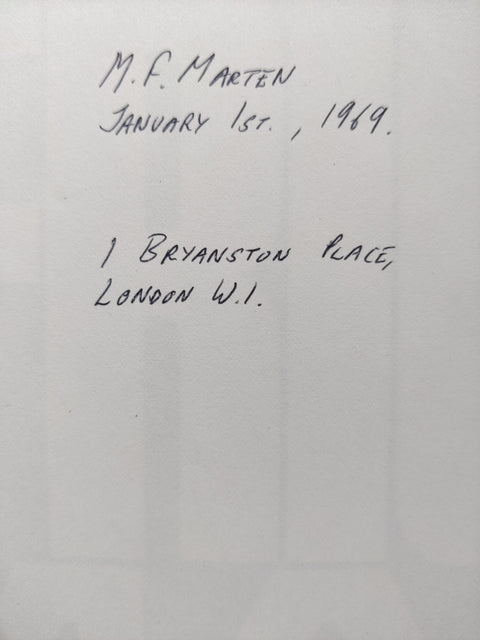 M. F. MARTEN
JANUARY 1ST., 1969.
1 BRYANSTON PLACE,
LONDON W.1.